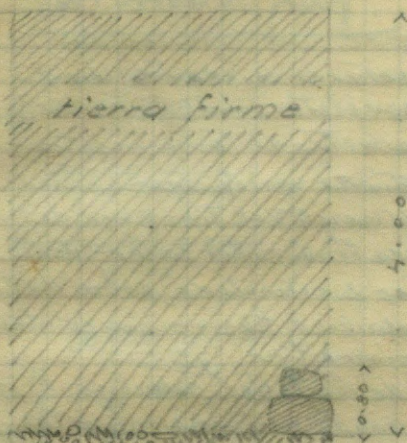 tierra firme
4.00
0.80